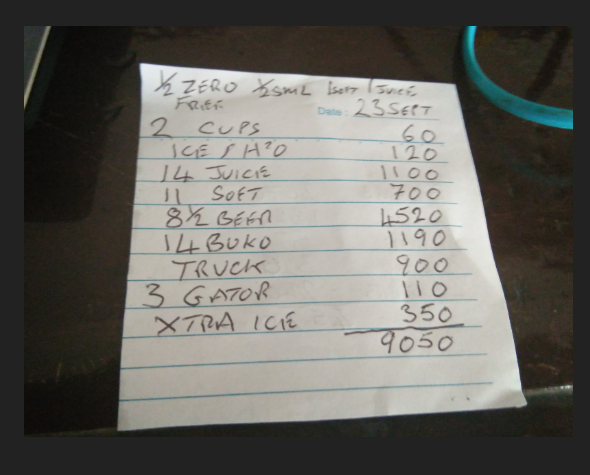 ½ ZERO ½ SML 1 SOFT 1 JUICE
FREE Date: 23 SEPT
2 CUPS 60
ICE / H²O 120
14 JUICE 1100
11 SOFT 700
8½ BEER 4520
14 BUKO 1190
TRUCK 900
3 GATOR 110
XTRA ICE 350
9050